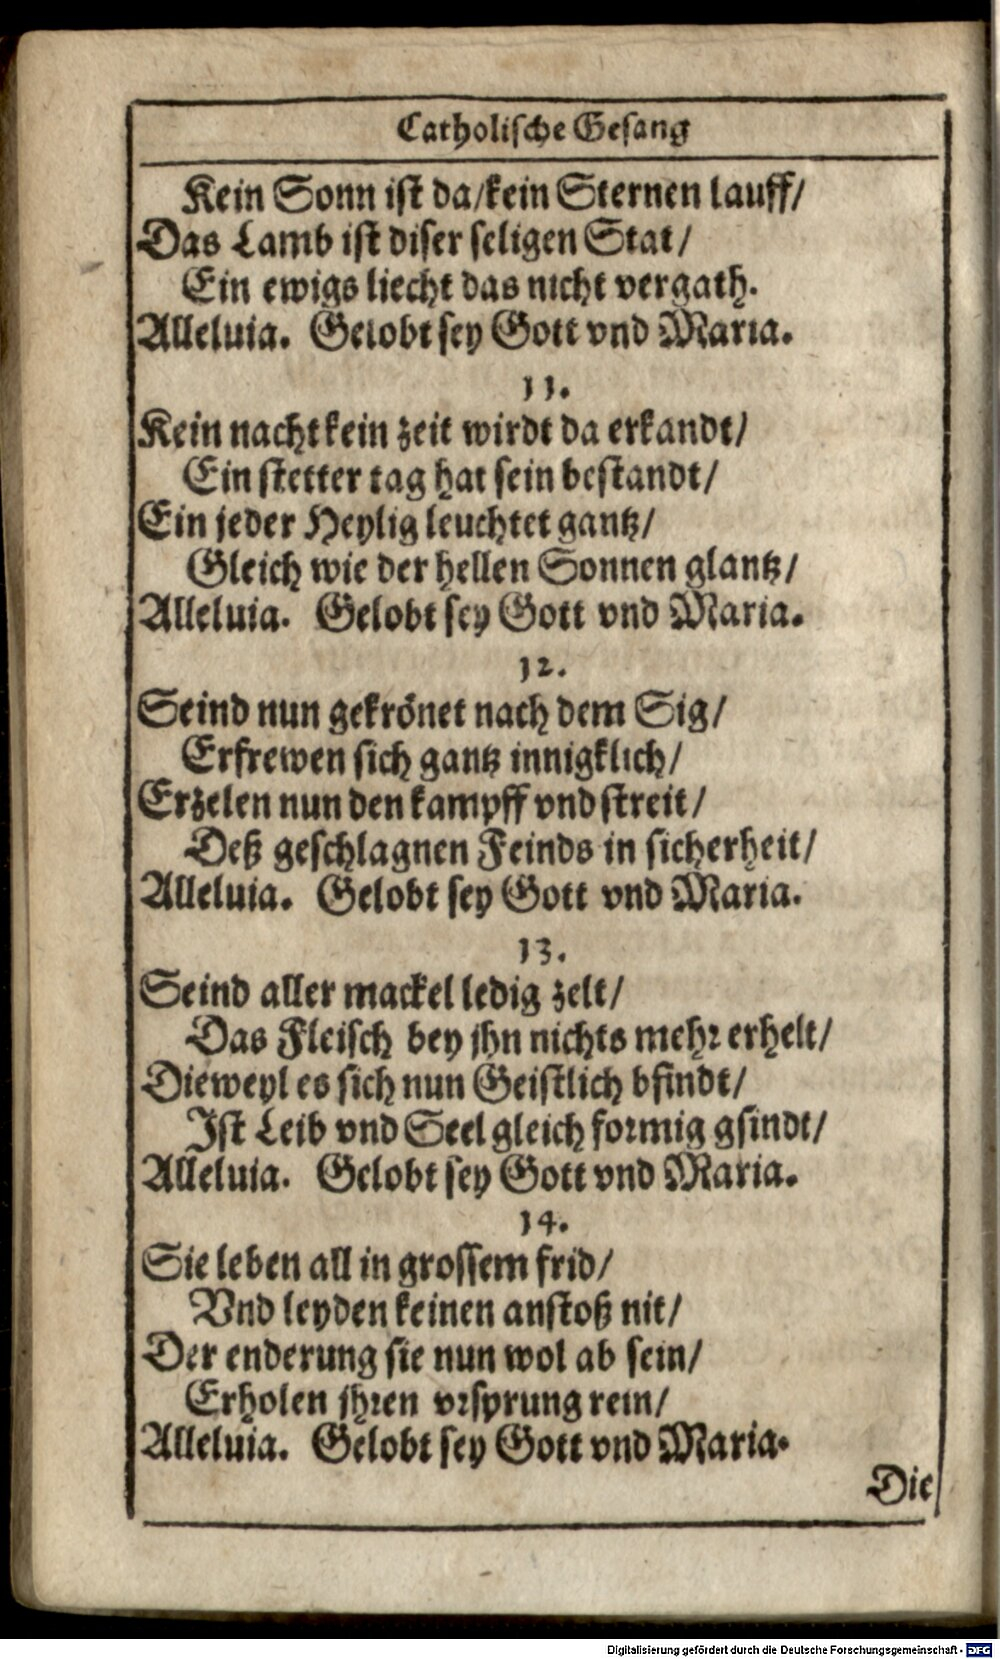 Catholische Gesang
Kein Sonn ist da/kein Sternen lauff/
Das Lamb ist diser seligen Stat/
Ein ewigs liecht das nicht vergath.
Alleluia. Gelobt sey Gott vnd Maria.
11.
Kein nacht kein zeit wirdt da erkandt/
Ein stetter tag hat sein bestandt/
Ein jeder Heylig leuchtet gantz/
Gleich wie der hellen Sonnen glantz/
Alleluia. Gelobt sey Gott vnd Maria.
12.
Seind nun gekrönet nach dem Sig/
Erfrewen sich gantz innigklich/
Erzelen nun den kampff vnd streit/
Deß geschlagnen Feinds in sicherheit/
Alleluia. Gelobt sey Gott vnd Maria.
13.
Seind aller mackel ledig zelt/
Das Fleisch bey jhn nichts mehr erhelt/
Dieweyl es sich nun Geistlich bfindt/
Ist Leib vnd Seel gleich formig gsindt/
Alleluia. Gelobt sey Gott vnd Maria.
14.
Sie leben all in grossem frid/
Vnd leyden keinen anstoß nit/
Der enderung sie nun wol ab sein/
Erholen jhren vrsprung rein/
Alleluia. Gelobt sey Gott vnd Maria.
Die
Digitalisierung gefördert durch die Deutsche Forschungsgemeinschaft - DFG